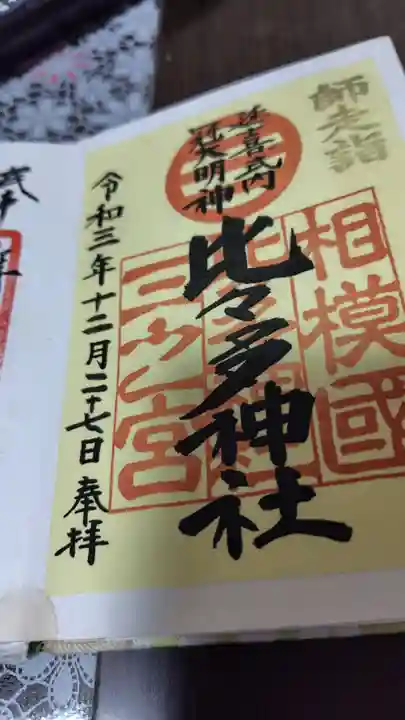 師走詣
延喜式内
冠大明神
相模國
比々多神社
三之宮
令和三年十二月二十七日奉拝